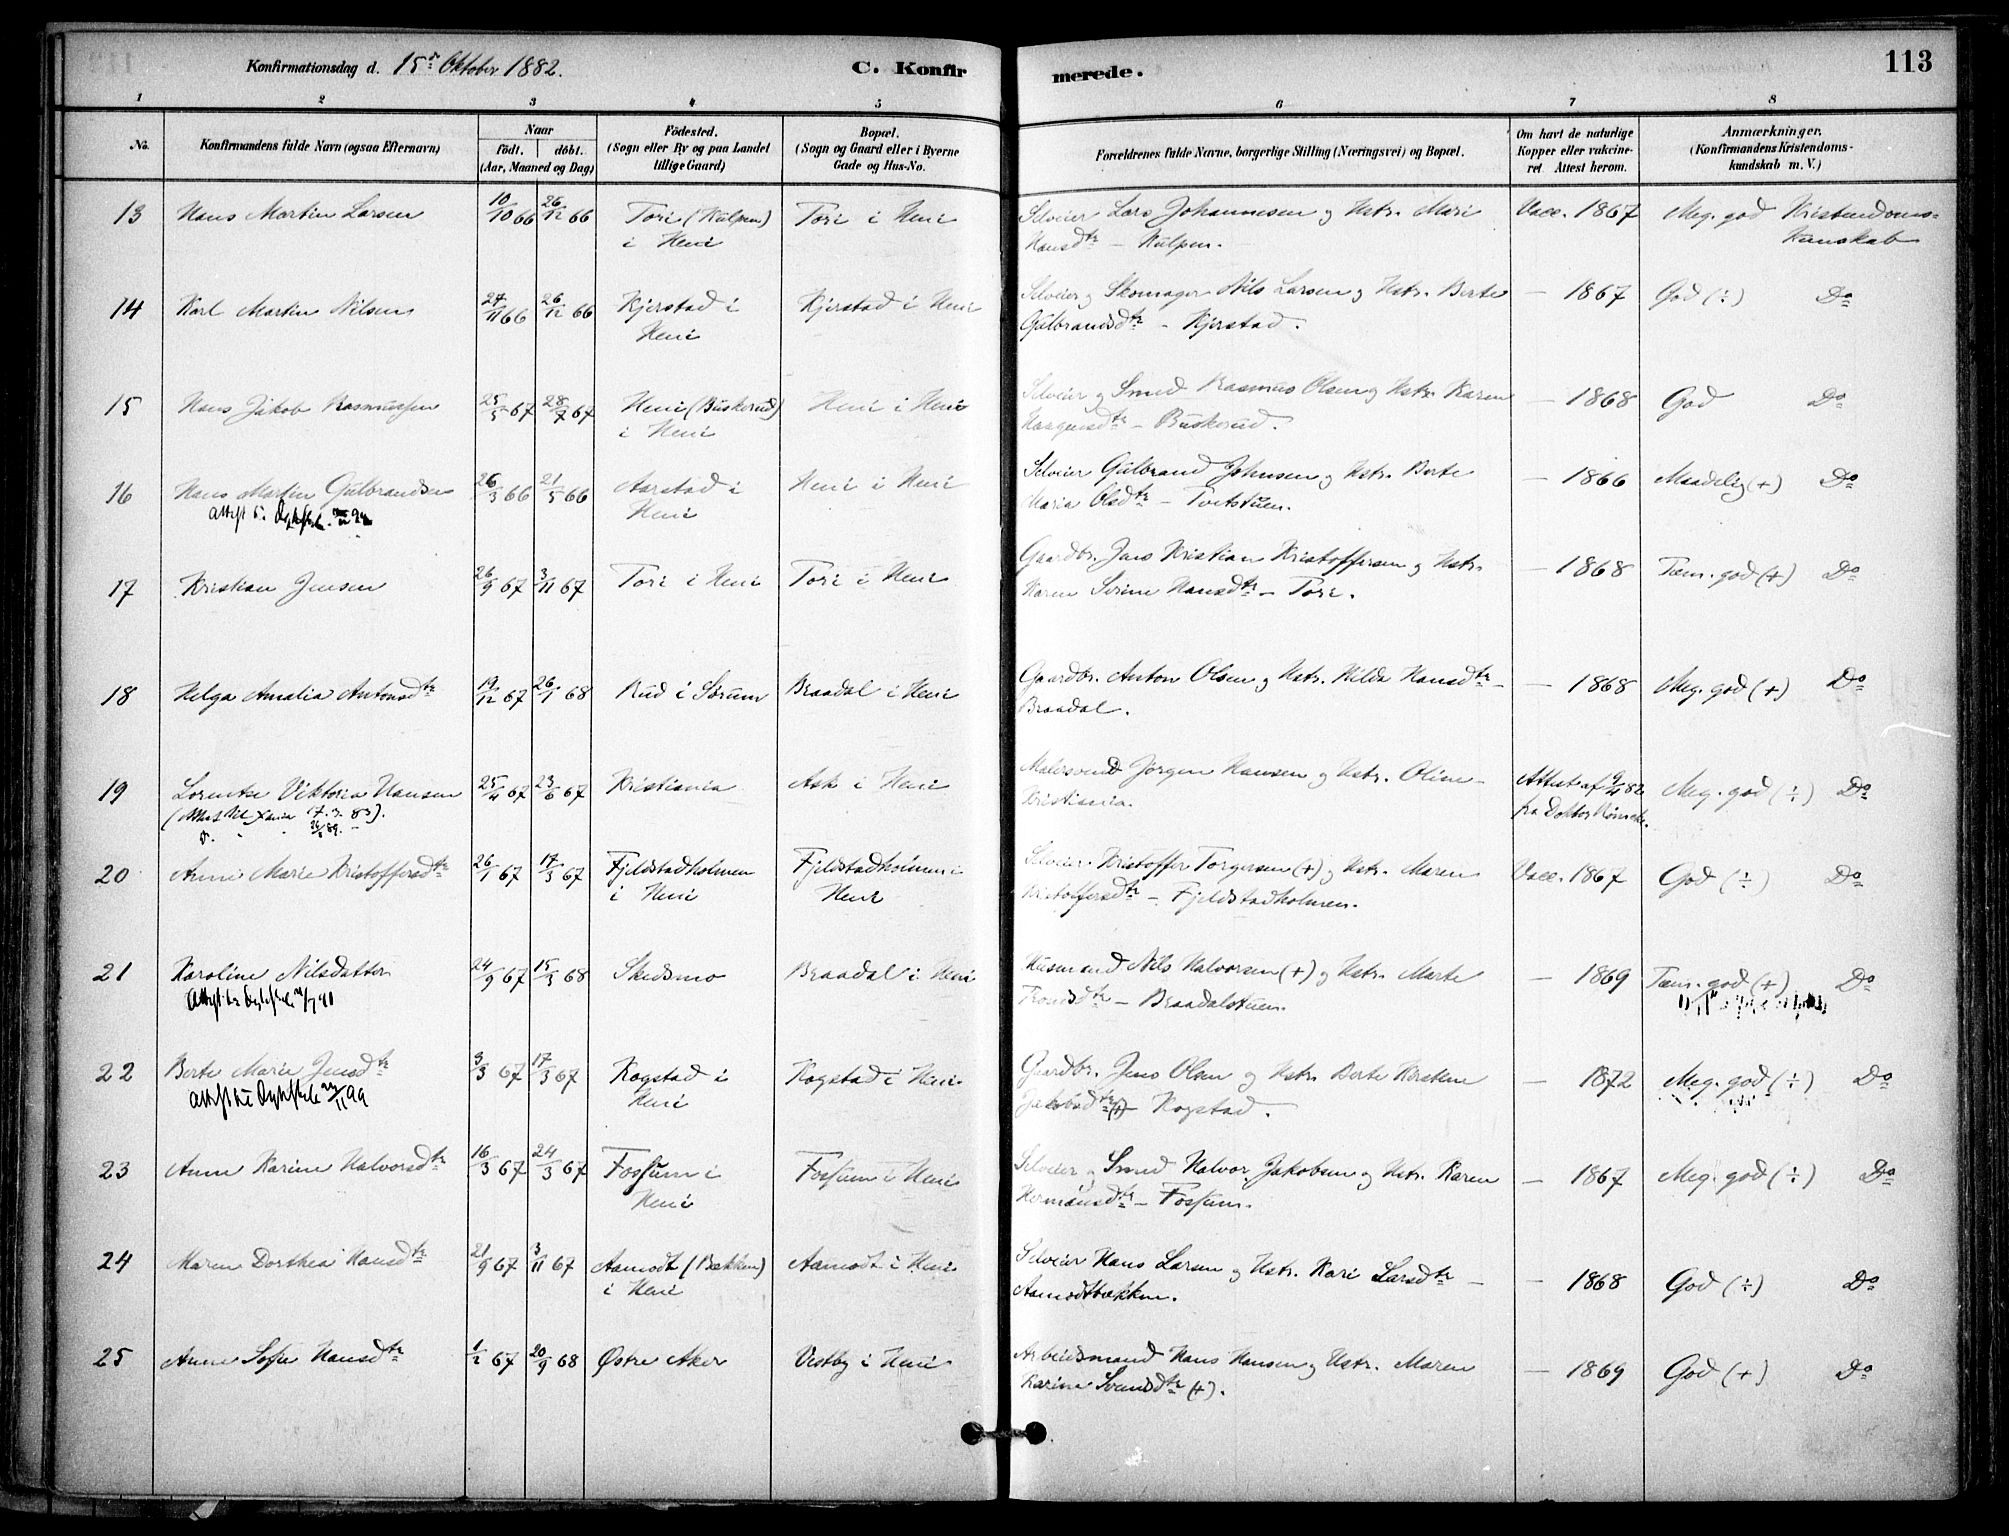 Konfirmationsdag d. 15de Oktober 1882.
C. Konfir
merede.
113
1 2 3 4 5 6 7 8
No.
Konfirmandens fulde Navn (ogsaa Efternavn)
Naar
födt. döbt.
(Aar, Maaned og Dag)
Födested.
(Sogn eller By og paa Landet
tillige Gaard)
Bopæl.
(Sogn og Gaard eller i Byerne
Gade og Hus-No.
Forældrenes fulde Navne, borgerlige Stilling (Næringsvei) og Bopæl.
Om havt de naturlige
Kopper eller vakcine-
ret Attest herom.
Anmærkninger.
(Konfirmandens Kristendoms-
kundskab m. V.)
13 Hans Martin Larsen 10/10 66 26/12 66 Tori (Kulpen) Tori i Heni Selveier Lars Johannesen og Hstr. Mari Vacc. 1867 Meg. god Kristendoms-
i Heni Hansdtr – Kulpen. Kunskab
14 Karl Martin Nilsen 27/11 66 26/12 66 Kjerstad i Kjerstad i Heni Selveier og Skomager Nils Larsen og Hstr. Berte – 1867 God (÷) Do
Heni Gulbrandsdtr – Kjerstad.
15 Hans Jakob Rasmussen 25/5 67 28/7 67 Heni (Buskerud) Heni i Heni Selveier og Smed Rasmus Olsen og Hstr. Karen – 1868 God Do
i Heni Haagensdtr – Buskerud.
16 Hans Martin Gulbrandsen 26/3 66 21/5 66 Aarstad i Heni i Heni Selveier Gulbrand Johnsen og Hstr. Berte – 1866 Maadelig (+) Do
Heni Maria Olsdtr – Tvetstuen.
17 Kristian Jensen 26/9 67 3/11 67 Tori i Heni Tori i Heni Gaardbr. Jens Kristian Kristoffersen og Hstr. – 1868 Tem. god (+) Do
Karen Sirine Hansdtr – Tori.
18 Helga Amalia Antonsdtr 19/12 67 26/1 68 Rud i Sørum Braadal i Heni Gaardbr. Anton Olsen og Hstr. Hilda Hansdtr – – 1868 Meg. god (+) Do
Braadal.
19 Lorentse Viktoria Hansen 25/4 67 23/6 67 Kristiania Ask i Heni Malersvend Jørgen Hansen og Hstr. Oline – Attest af 9/4 82 Meg. god (÷) Do
(Attest til Xania 17.3.83). Kristiania. fra Doktor
20 Anne Marie Kristoffersdtr 26/1 67 17/3 67 Fjeldstadholmen Fjeldstadholmen i Selveier Kristoffer Torgersen (+) og Hstr. Maren Vacc. 1867 God (÷) Do
i Heni Heni Kristoffersdtr – Fjeldstadholmen.
21 Karoline Nilsdatter 24/9 67 15/3 68 Skedsmo Braadal i Heni Husmand Nils Halvorsen (+) og Hstr. Marte – 1869 Tem. god (+) Do
Trondsdtr – Braadalstuen.
22 Berte Marie Jensdtr 3/3 67 17/3 67 Kogstad i Kogstad i Heni Gaardbr. Jens Olsen og Hstr. Berte Kirstine – 1872 Meg. god (÷) Do
Heni Jakobsdtr (+) Kogstad.
23 Anne Karine Halvorsdtr 16/3 67 24/3 67 Fossum i Fossum i Heni Selveier og Smed Halvor Jakobsen og Hstr. Karen – 1867 Meg. god (÷) Do
Heni Hermansdtr – Fossum.
24 Maren Dorthea Hansdtr 21/9 67 3/11 67 Aamodt (Bækken) Aamodt i Heni Selveier Hans Larsen og Hstr. Kari Larsdtr – – 1868 God (÷) Do
i Heni Aamodtbækken.
25 Anne Sofie Hansdtr 1/2 67 20/9 68 Østre Aker Vestby i Heni Arbeidsmand Hans Hansen og Hstr. Maren – 1869 God (+) Do
Karine Svendsdtr (+).